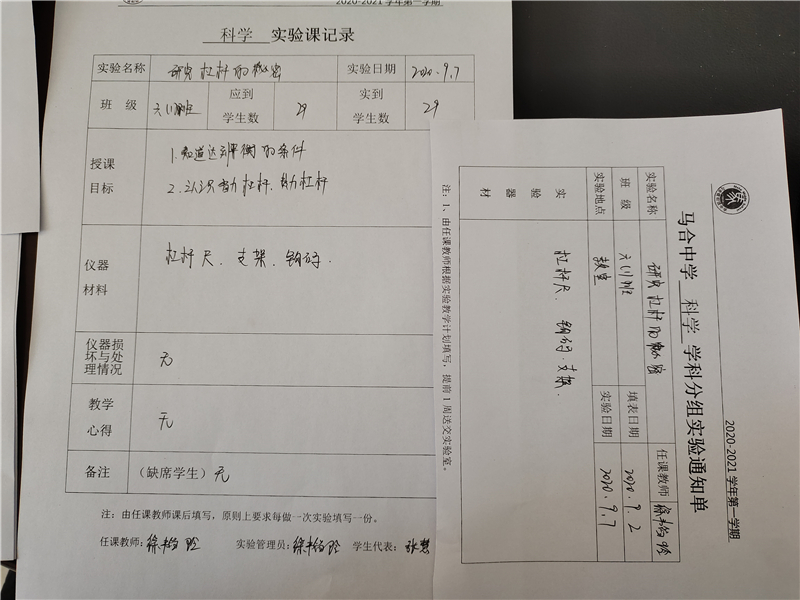 2020-2021 学年第一学期
科学 实验课记录
实验名称 研究杠杆的秘密 实验日期 2020.9.7
班 级 六(1)班 应到学生数 29 实到学生数 29
授课目标
1.知道达到平衡的条件
2.认识省力杠杆、费力杠杆
仪器材料 杠杆尺、支架、钩码.
仪器损坏与处理情况 无
教学心得 无
备注 (缺席学生) 无
注：由任课教师课后填写，原则上要求每做一次实验填写一份。
任课教师: 实验管理员: 学生代表: 张慧
2020-2021 学年第一学期
马合中学 科学 学科分组实验通知单
实验名称 研究杠杆的秘密 任课教师
班 级 六(1)班 填表日期 2020.9.2
实验地点 教室 实验日期 2020.9.7
实验器材 杠杆尺、钩码、支架.
注：1、由任课教师根据实验教学计划填写，提前1周送交实验室。